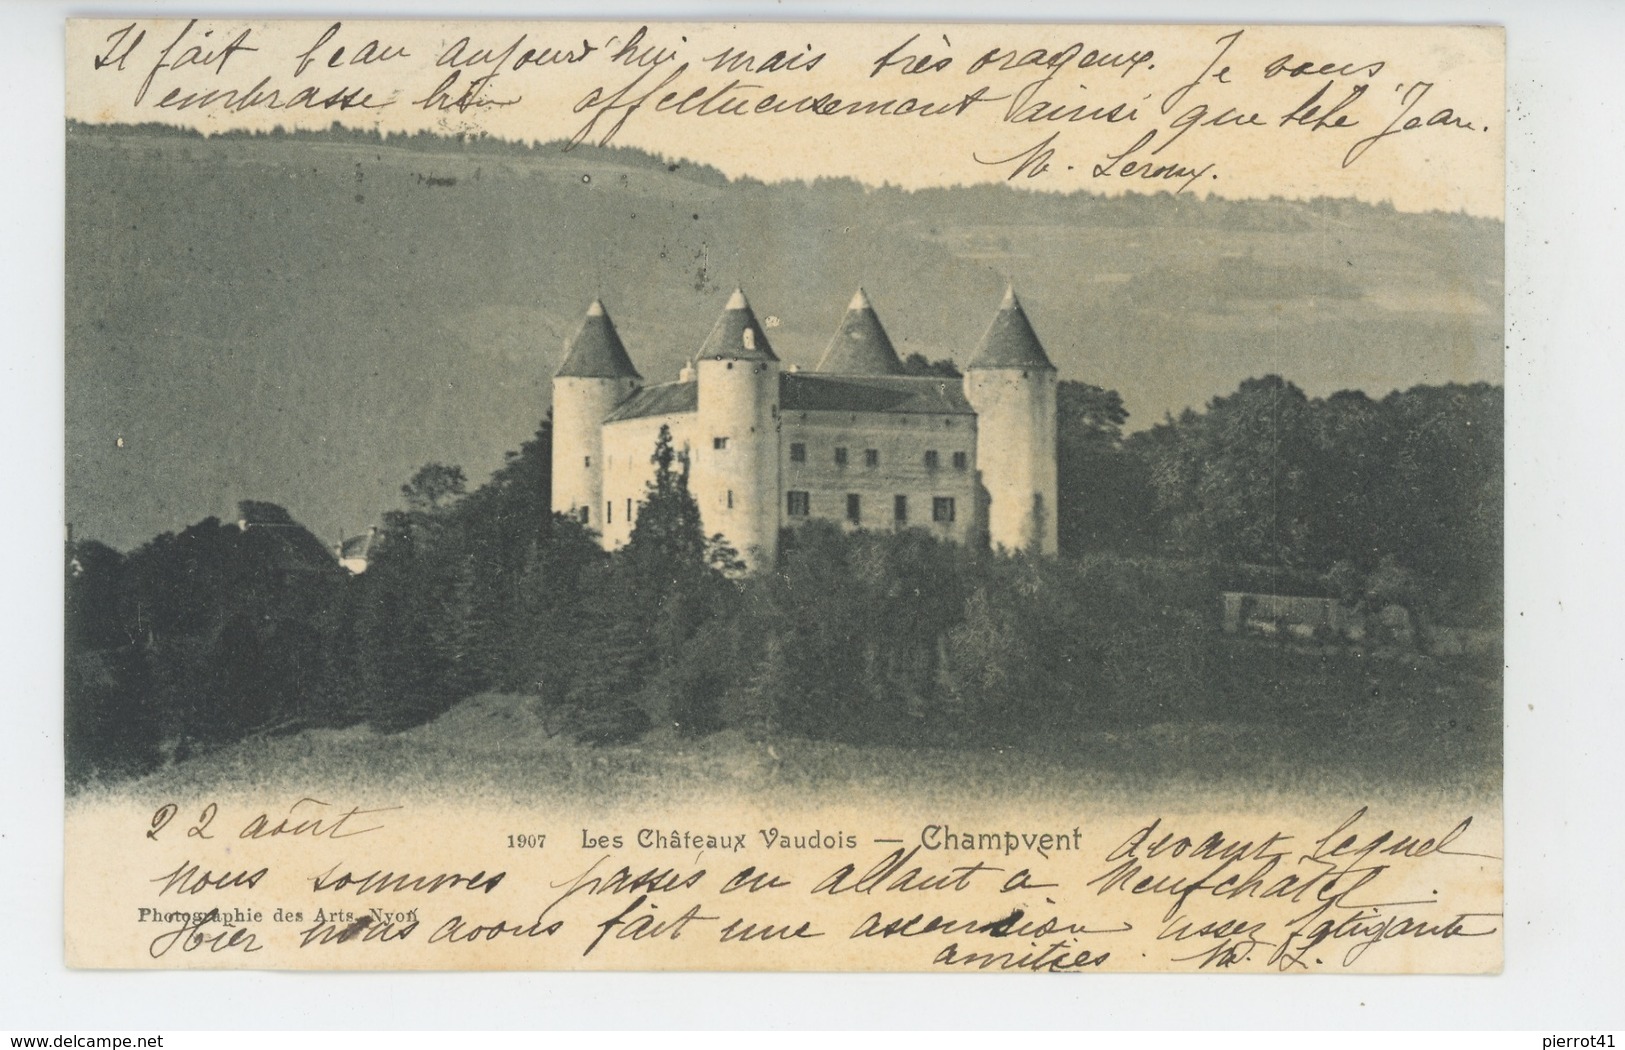 Il fait beau aujourd'hui mais très orageux. Je vous
embrasse bien affectueusement ainsi que Jean.
Leroux.
22 août
1907 Les Châteaux Vaudois — Champvent devant lequel
nous sommes passés en allant à Neufchatel.
Photographie des Arts, Nyon
Hier nous avons fait une ascension assez fatigante
amitiés. L.
delcampe.net
pierrot41